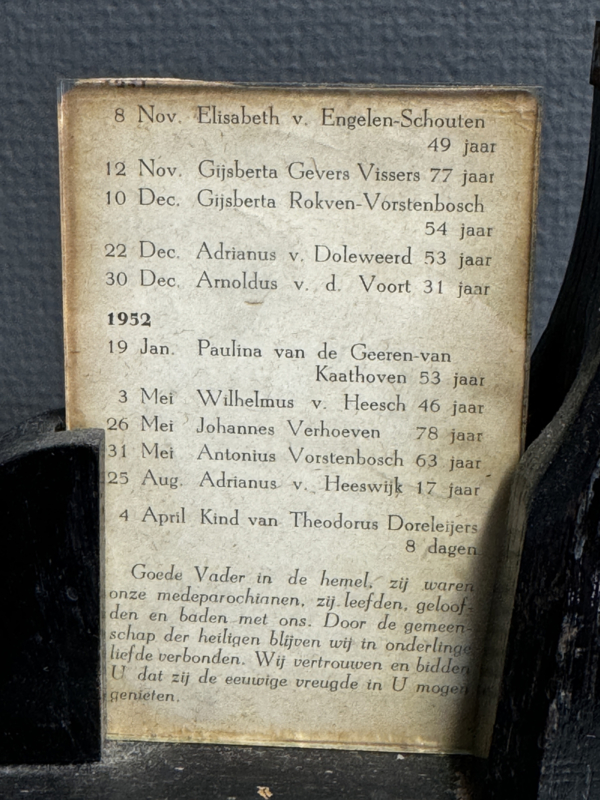 8 Nov. Elisabeth v. Engelen-Schouten
49 jaar
12 Nov. Gijsberta Gevers Vissers 77 jaar
10 Dec. Gijsberta Rokven-Vorstenbosch
54 jaar
22 Dec. Adrianus v. Doleweerd 53 jaar
30 Dec. Arnoldus v. d. Voort 31 jaar
1952
19 Jan. Paulina van de Geeren-van
Kaathoven 53 jaar
3 Mei Wilhelmus v. Heesch 46 jaar
26 Mei Johannes Verhoeven 78 jaar
31 Mei Antonius Vorstenbosch 63 jaar
25 Aug. Adrianus v. Heeswijk 17 jaar
4 April Kind van Theodorus Doreleijers
8 dagen
Goede Vader in de hemel, zij waren
onze medeparochianen, zij leefden, geloof-
den en baden met ons. Door de gemeen-
schap der heiligen blijven wij in onderlinge
liefde verbonden. Wij vertrouwen en bidden
U dat zij de eeuwige vreugde in U mogen
genieten.